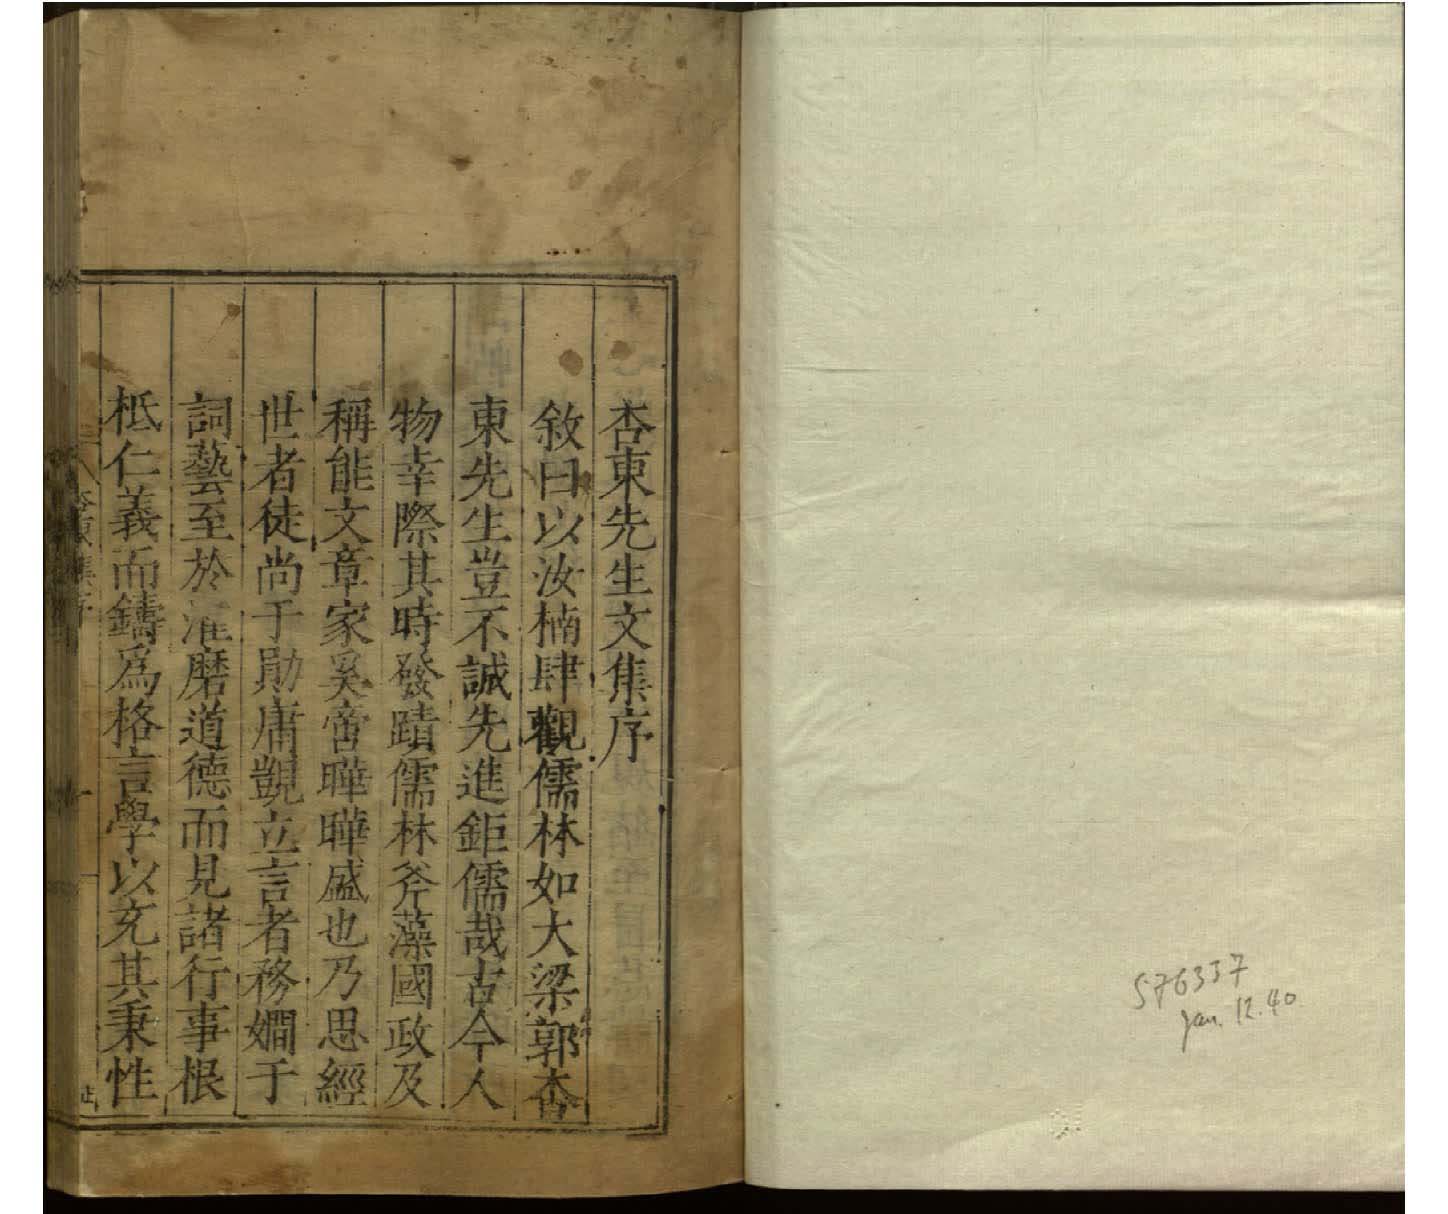 杏東先生文集序
敘曰以汝楠肆觀儒林如大梁郭杏
東先生豈不誠先進鉅儒哉古今人
物幸際其時發蹟儒林斧藻國政及
稱能文章家奚啻曄曄盛也乃思經
世者徒尚于勛庸覬立言者務嫺于
詞藝至於漼磨道德而見諸行事根
柢仁義而鑄爲格言學以充其秉性
杏東集序
一
576357
Jan. 12. 40